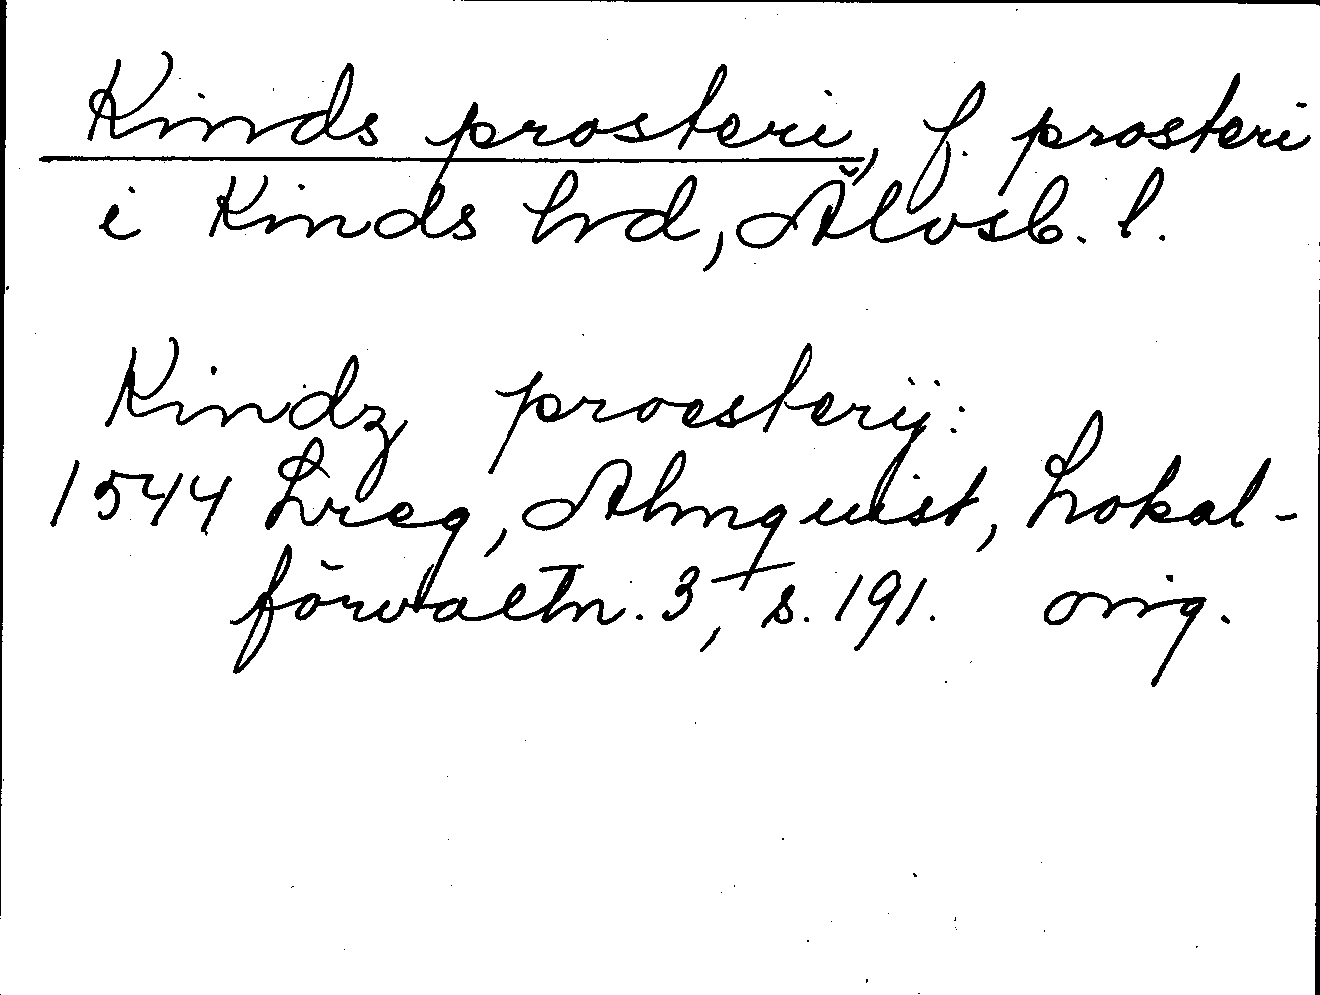 Kinds prosteri, f. prosteri
i Kinds hrd, Älvsb. l.
Kindz proesterij:
1544 Lreg, Almquist, Lokal-
förvaltn. 3, s. 191. orig.